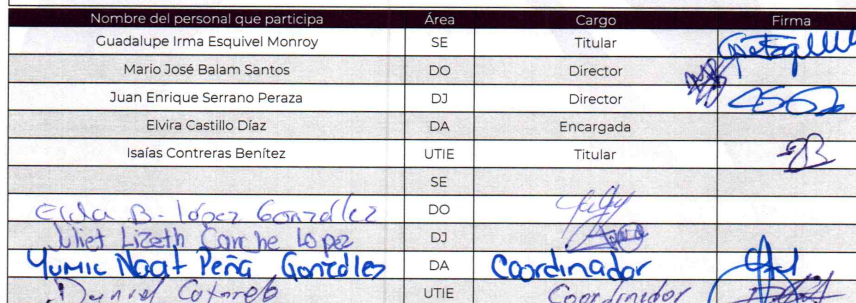 Nombre del personal que participa Área Cargo Firma
Guadalupe Irma Esquivel Monroy SE Titular
Mario José Balam Santos DO Director
Juan Enrique Serrano Peraza DJ Director
Elvira Castillo Díaz DA Encargada
Isaías Contreras Benítez UTIE Titular
SE
B. López González DO
Juliet Lizeth Canche Lopez DJ
Yumic Naat Peña González DA Coordinador
Daniel UTIE Coordinador